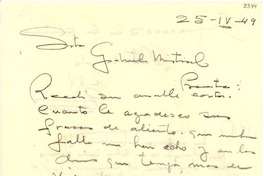 2344
25-IV-49
Srta Gabriela Mistral
Presente:
Recibí su amable carta.
Cuanto le agradesco sus
frases de aliento, que
falta me han echo y en los
días que tengo mas de